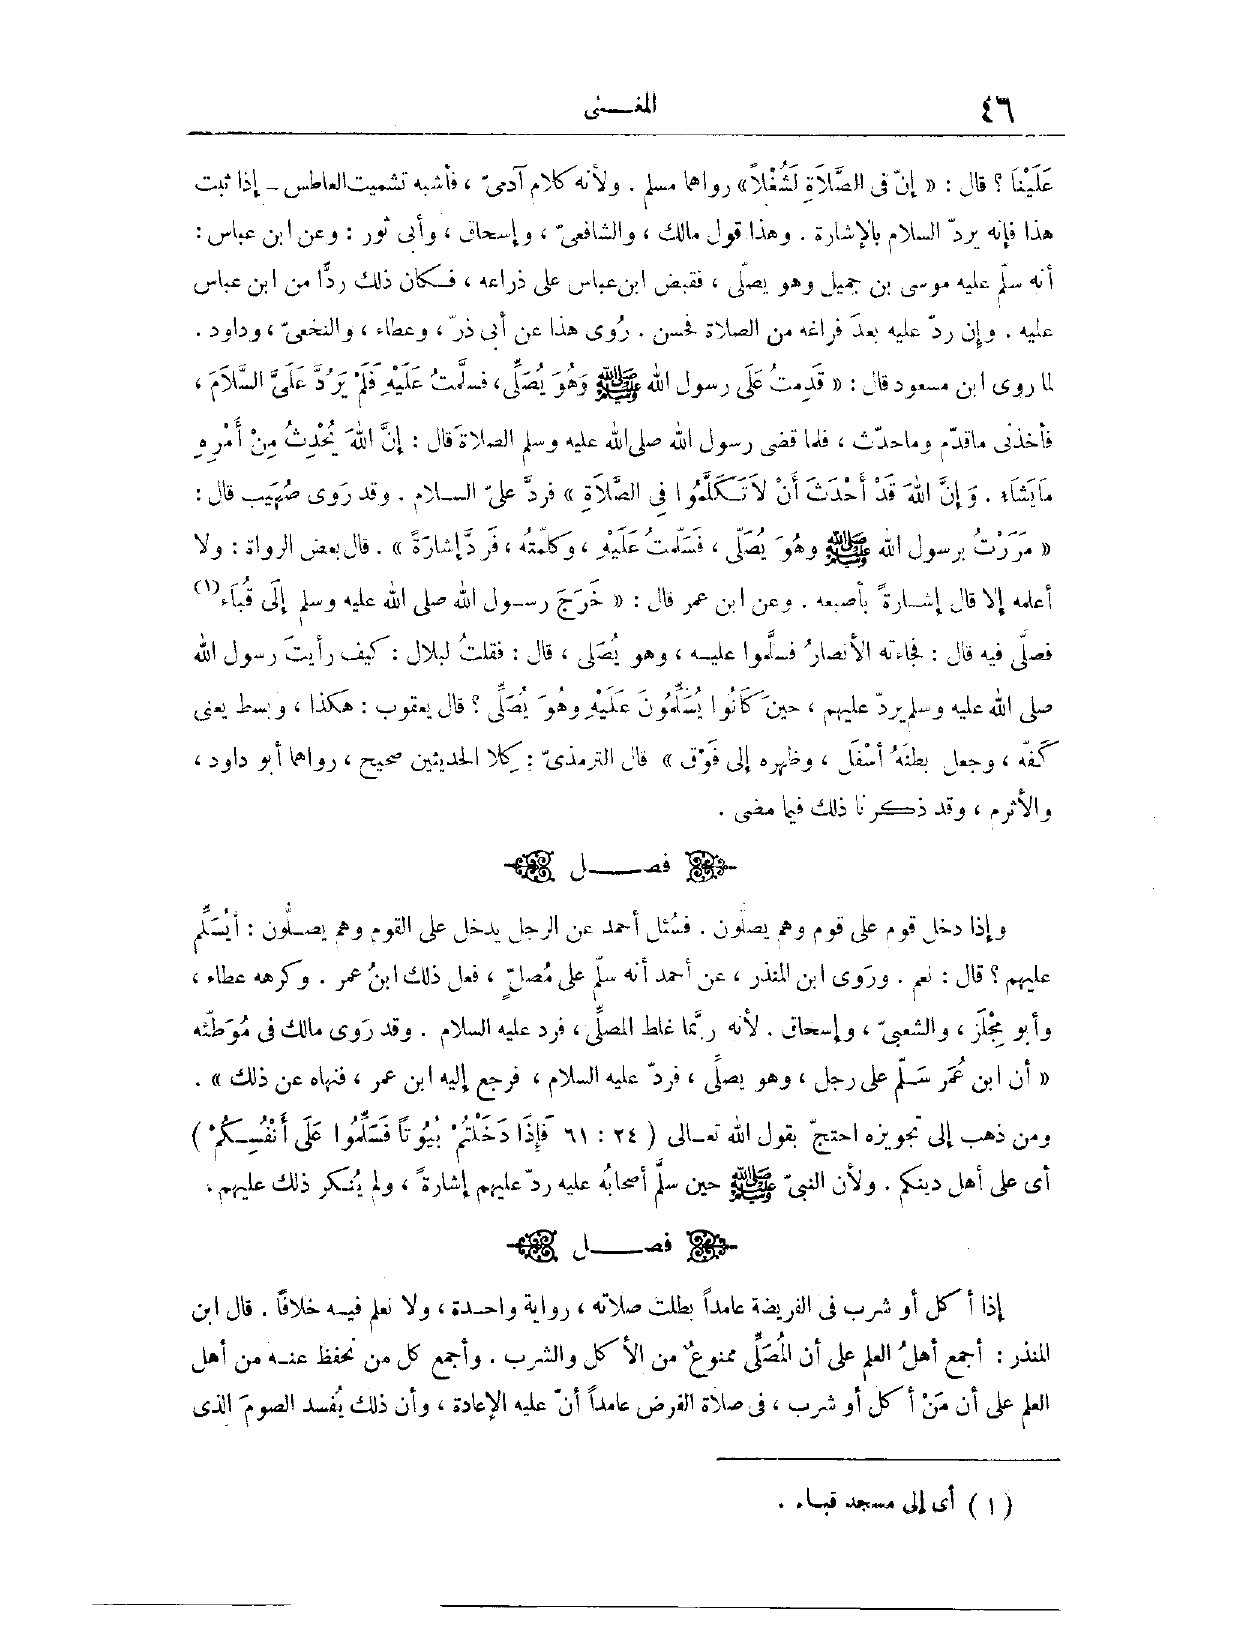 ٤٦
المغـــنى
عَلَيْنَا ؟ قال : « إنّ فى الصَّلَاةِ لَشُغْلاً» رواها مسلم . ولأنه كلام آدمىّ ، فأشبه تشميت العاطس ـ إذا ثبت
هذا فإنه يردّ السلام بالإشارة . وهذا قول مالك ، والشافعىّ ، وإسحاق ، وأبى ثور : وعن ابن عباس :
أنه سلّم عليه موسى بن جميل وهو يصلّى ، فقبض ابن عباس على ذراعه ، فـكان ذلك ردًّا من ابن عباس
عليه . وإن ردّ عليه بعدَ فراغه من الصلاة فحسن . رُوى هذا عن أبى ذرّ ، وعطاء ، والنخعىّ ، وداود .
لما روى ابن مسعود قال : « قَدِمتُ عَلَى رسول الله ﷺ وَهُوَ يُصَلِّى، فسلَّمتُ عَلَيْهِ فَلَمْ يَرُدَّ عَلَىَّ السَّلَامَ ،
فأخذنى ماقدّم وماحدّث ، فلما قضى رسول الله صلى الله عليه وسلم الصلاةَ قال : إنَّ اللهَ يُحْدِثُ مِنْ أَمْرِهِ
مَايَشَاءُ . وَإِنَّ اللهَ قَدْ أَحْدَثَ أَنْ لَاتَـكَلَّمُوا فِى الصَّلَاةِ » فردَّ علىّ السـلام . وقد رَوى صُهَيب قال :
« مَرَرْتُ برسول الله ﷺ وهُوَ يُصَلِّى ، فَسَلّمتُ عَلَيْهِ ، وكلّمتُه ، فَردَّ إشارَةً » . قال بعض الرواة : ولا
أعلمه إلا قال إشـارةً بأصبعه . وعن ابن عمر قال : « خَرَجَ رسـول الله صلى الله عليه وسلم إلَى قُبَاء(١)
فصلّى فيه قال : فجاءته الأنصارُ فسلَّموا عليـه ، وهو يُصَلى ، قال : فقلتُ لبلال : كيف رأيتَ رسول الله
صلى الله عليه وسلم يردّ عليهم ، حينَ كَانُوا يُسَلِّمُونَ عَلَيْهِ وهُوَ يُصَلِّى ؟ قال يعقوب : هكذا ، وبسط يعنى
كَفّه ، وجعل بطنَهُ أسْفَل ، وظهره إلى فَوْق » قال الترمذىّ : كِلا الحديثين صحيح ، رواها أبو داود ،
والأثرم ، وقد ذكرنا ذلك فيما مضى .
فصـــل
وإذا دخل قوم على قوم وهم يصلّون . فسُئل أحمد عن الرجل يدخل على القوم وهم يصـلُّون : أيُسَلِّم
عليهم ؟ قال : نعم . ورَوى ابن المنذر ، عن أحمد أنه سلّم على مُصلٍّ ، فعل ذلك ابنُ عمر . وكرهه عطاء ،
وأبو مِجْلَز ، والشعبىّ ، وإسحاق . لأنه ربَّما غلط المصلِّى ، فرد عليه السلام . وقد رَوى مالك فى مُوَطّئه
« أن ابن عُمَر سَـلّم على رجل ، وهو يصلِّى ، فردّ عليه السلام ، فرجع إليه ابن عمر ، فنهاه عن ذلك » .
ومن ذهب إلى تجويزه احتجّ بقول الله تعـالى ( ٢٤ : ٦١ فَإِذَا دَخَلْتُمْ بُيُوتًا فَسَلِّمُوا عَلَى أَنْفُسِـكُمْ )
أى على أهل دينكم . ولأن النبىّ ﷺ حين سلَّم أصحابُه عليه ردّ عليهم إشارةً ، ولم يُنكر ذلك عليهم .
فصـــل
إذا أكل أو شرب فى الفريضة عامداً بطلت صلاته ، رواية واحـدة ، ولا نعلم فيـه خلافًا . قال ابن
المنذر : أجمع أهلُ العلم على أن المُصَلِّى ممنوعٌ من الأكل والشرب . وأجمع كل من نحفظ عنـه من أهل
العلم على أن مَنْ أكل أو شرب ، فى صلاة الفرض عامداً أنّ عليه الإعادة ، وأن ذلك يُفسد الصومَ الذى
( ١ ) أى إلى مسجد قبـاء .